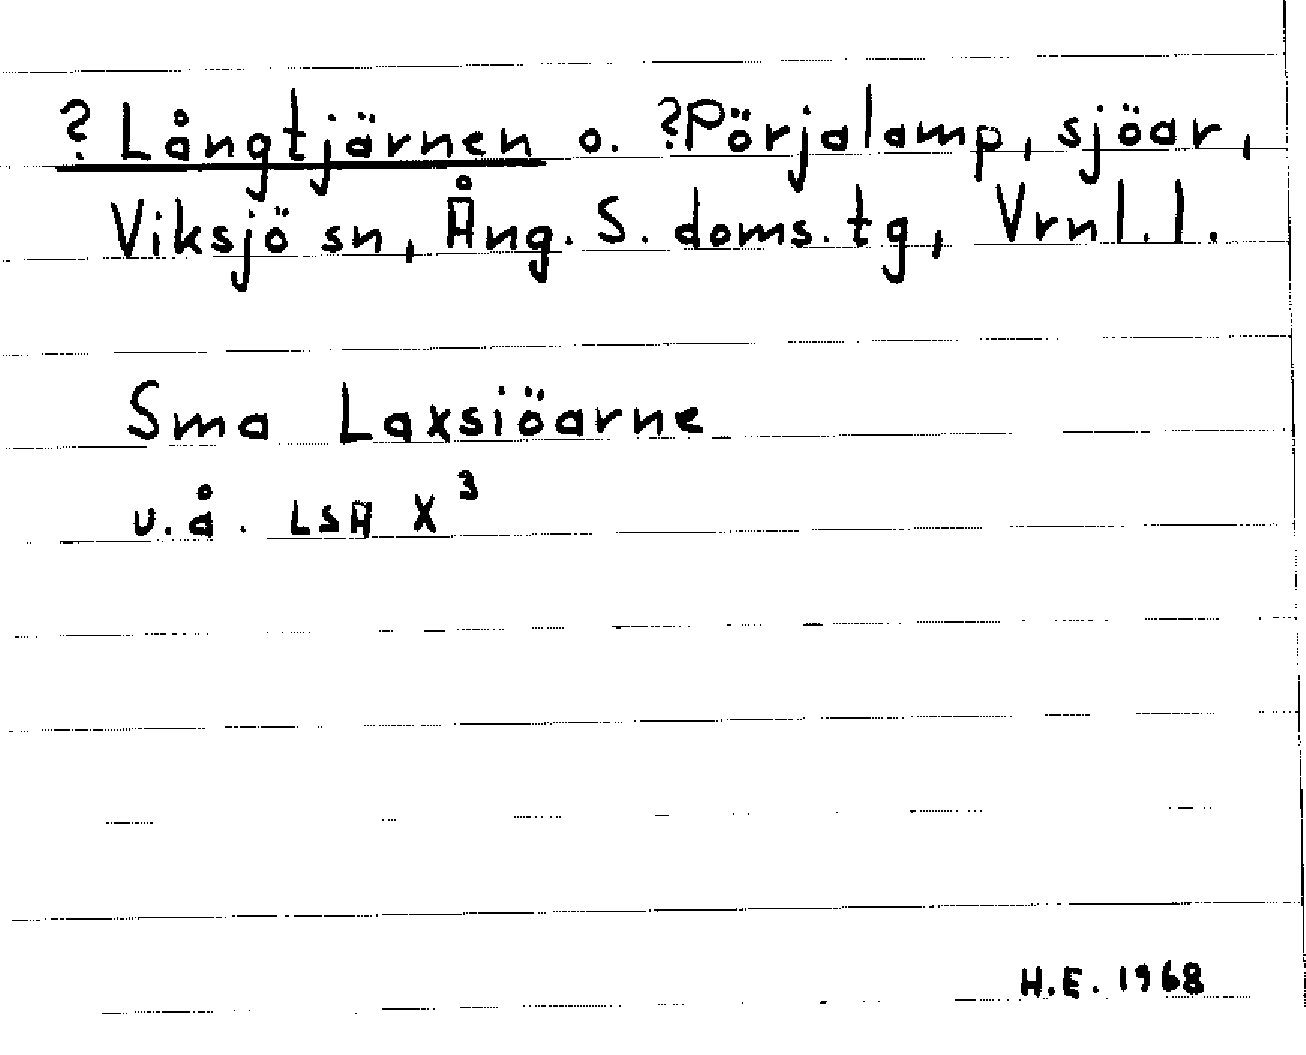 ? Långtjärnen o. ?Pörjalamp, sjöar,
Viksjö sn, Ång. S. doms. tg, Vrnl. l.
Sma Laxsiöarne
u. å. LSA X³
H.E. 1968